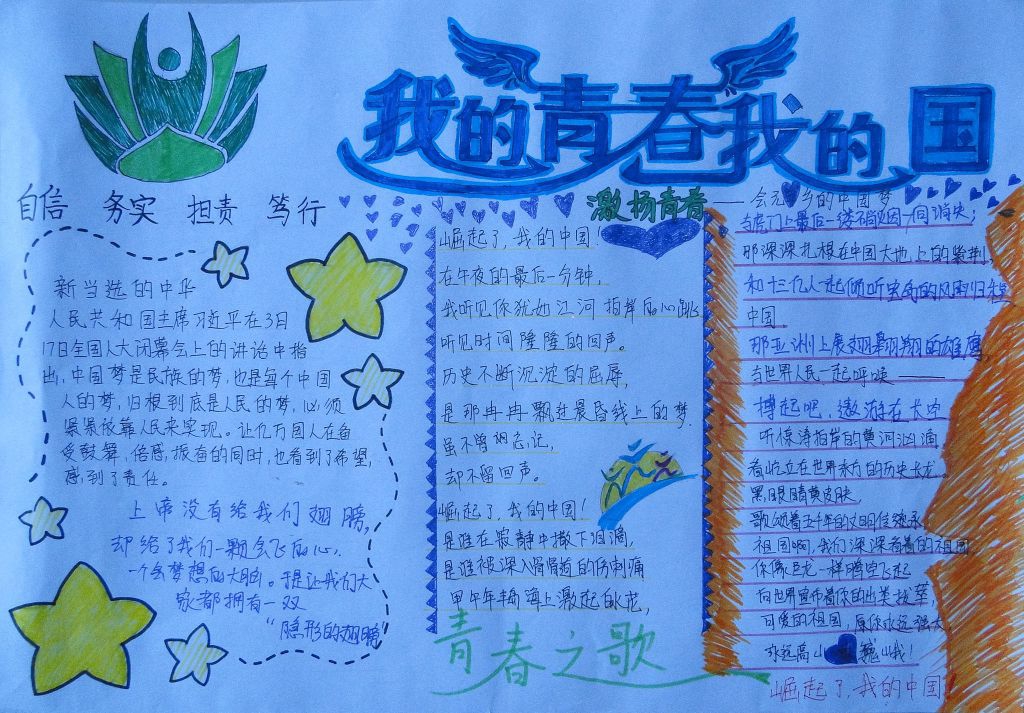 我的青春我的国
自信 务实 担责 笃行
新当选的中华
人民共和国主席习近平在3日
17日全国人大闭幕会上的讲话中指
出,中国梦是民族的梦,也是每个中国
人的梦,归根到底是人民的梦,必须
紧紧依靠人民来实现。让亿万国人在备
受鼓舞、倍感振奋的同时,也看到了希望,
感到了责任。
上帝没有给我们翅膀,
却给了我们一颗会飞的心,
一个会梦想的大脑。于是让我们大
家都拥有一双
“隐形的翅膀
激扬青春
崛起了,我的中国!
在午夜的最后一分钟,
我听见你犹如江河拍岸的心跳
听见时间隆隆的回声。
历史不断沉淀的屈辱,
是那冉冉飘赴晨昏线上的梦
虽不曾相忘记,
却不留回声。
崛起了,我的中国!
是谁在寂静中撒下泪滴,
是谁被深入骨髓的伤刺痛
甲午年 海上激起的水花,
青春之歌
——会元 乡的中国梦
当虎门上最后一缕 烟消失;
那深深扎根在中国大地上的紫荆,
和十三亿人一起倾听宝岛的风雨归程
中国
那亚洲上展翅翱翔的雄鹰
当世界人民一起呼唤——
搏起吧,遨游在太空
听惊涛拍岸的黄河汹涌
看屹立在世界东方的历史长龙
黑眼睛黄皮肤
歌颂着五千年的文明信 承,
祖国啊,我们深深 着的祖国
你像巨龙一样腾空飞起
向世界宣布着你的出类拔萃,
可爱的祖国,愿你永远强大
永远高山 巍峨!
崛起了,我的中国!